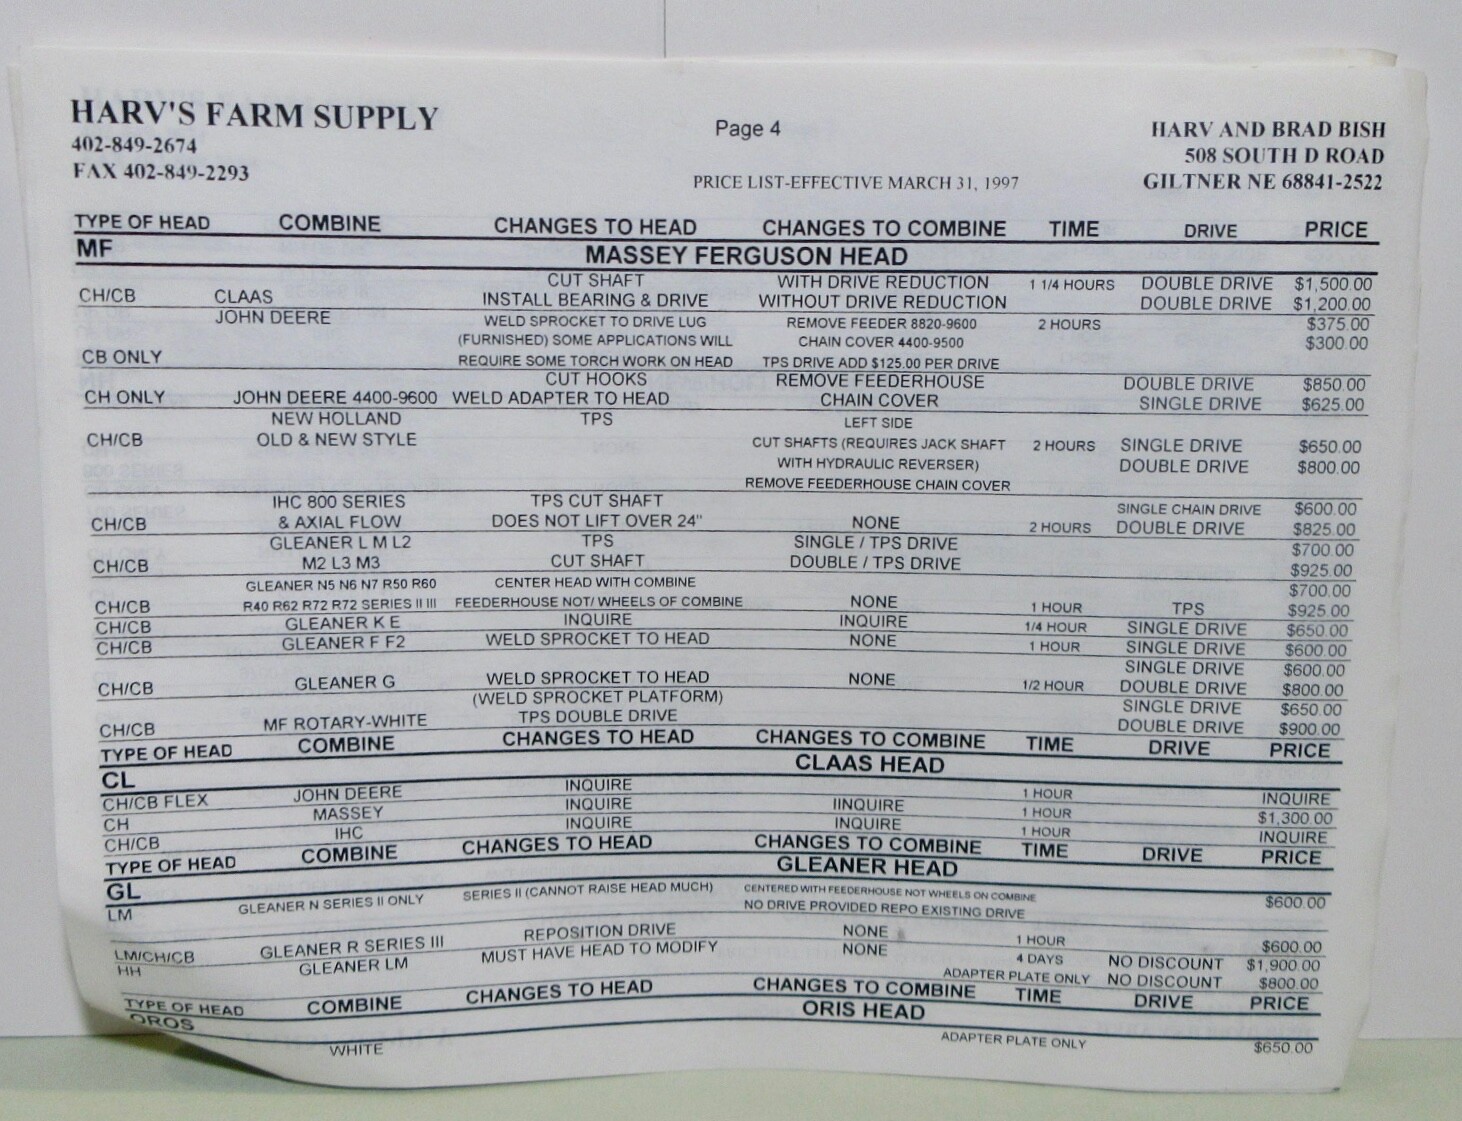 HARV'S FARM SUPPLY
402-849-2674
FAX 402-849-2293
Page 4
PRICE LIST-EFFECTIVE MARCH 31, 1997
HARV AND BRAD BISH
508 SOUTH D ROAD
GILTNER NE 68841-2522
TYPE OF HEAD COMBINE CHANGES TO HEAD CHANGES TO COMBINE TIME DRIVE PRICE
MF MASSEY FERGUSON HEAD
CUT SHAFT WITH DRIVE REDUCTION 1 1/4 HOURS DOUBLE DRIVE $1,500.00
CH/CB CLAAS INSTALL BEARING & DRIVE WITHOUT DRIVE REDUCTION DOUBLE DRIVE $1,200.00
JOHN DEERE WELD SPROCKET TO DRIVE LUG REMOVE FEEDER 8820-9600 2 HOURS $375.00
(FURNISHED) SOME APPLICATIONS WILL CHAIN COVER 4400-9500 $300.00
CB ONLY REQUIRE SOME TORCH WORK ON HEAD TPS DRIVE ADD $125.00 PER DRIVE
CUT HOOKS REMOVE FEEDERHOUSE DOUBLE DRIVE $850.00
CH ONLY JOHN DEERE 4400-9600 WELD ADAPTER TO HEAD CHAIN COVER SINGLE DRIVE $625.00
NEW HOLLAND TPS LEFT SIDE
CH/CB OLD & NEW STYLE CUT SHAFTS (REQUIRES JACK SHAFT 2 HOURS SINGLE DRIVE $650.00
WITH HYDRAULIC REVERSER) DOUBLE DRIVE $800.00
REMOVE FEEDERHOUSE CHAIN COVER
IHC 800 SERIES TPS CUT SHAFT SINGLE CHAIN DRIVE $600.00
CH/CB & AXIAL FLOW DOES NOT LIFT OVER 24" NONE 2 HOURS DOUBLE DRIVE $825.00
GLEANER L M L2 TPS SINGLE / TPS DRIVE $700.00
CH/CB M2 L3 M3 CUT SHAFT DOUBLE / TPS DRIVE $925.00
GLEANER N5 N6 N7 R50 R60 CENTER HEAD WITH COMBINE $700.00
CH/CB R40 R62 R72 R72 SERIES II III FEEDERHOUSE NOT/ WHEELS OF COMBINE NONE 1 HOUR TPS $925.00
CH/CB GLEANER K E INQUIRE INQUIRE 1/4 HOUR SINGLE DRIVE $650.00
CH/CB GLEANER F F2 WELD SPROCKET TO HEAD NONE 1 HOUR SINGLE DRIVE $600.00
SINGLE DRIVE $600.00
CH/CB GLEANER G WELD SPROCKET TO HEAD NONE 1/2 HOUR DOUBLE DRIVE $800.00
(WELD SPROCKET PLATFORM) SINGLE DRIVE $650.00
CH/CB MF ROTARY-WHITE TPS DOUBLE DRIVE DOUBLE DRIVE $900.00
TYPE OF HEAD COMBINE CHANGES TO HEAD CHANGES TO COMBINE TIME DRIVE PRICE
CL CLAAS HEAD
CH/CB FLEX JOHN DEERE INQUIRE 1 HOUR INQUIRE
CH MASSEY INQUIRE IINQUIRE 1 HOUR $1,300.00
CH/CB IHC INQUIRE INQUIRE 1 HOUR INQUIRE
TYPE OF HEAD COMBINE CHANGES TO HEAD CHANGES TO COMBINE TIME DRIVE PRICE
GL GLEANER HEAD
LM GLEANER N SERIES II ONLY SERIES II (CANNOT RAISE HEAD MUCH) CENTERED WITH FEEDERHOUSE NOT WHEELS ON COMBINE $600.00
NO DRIVE PROVIDED REPO EXISTING DRIVE
LM/CH/CB GLEANER R SERIES III REPOSITION DRIVE NONE 1 HOUR $600.00
HH GLEANER LM MUST HAVE HEAD TO MODIFY NONE 4 DAYS NO DISCOUNT $1,900.00
ADAPTER PLATE ONLY NO DISCOUNT $800.00
TYPE OF HEAD COMBINE CHANGES TO HEAD CHANGES TO COMBINE TIME DRIVE PRICE
OROS ORIS HEAD
WHITE ADAPTER PLATE ONLY $650.00